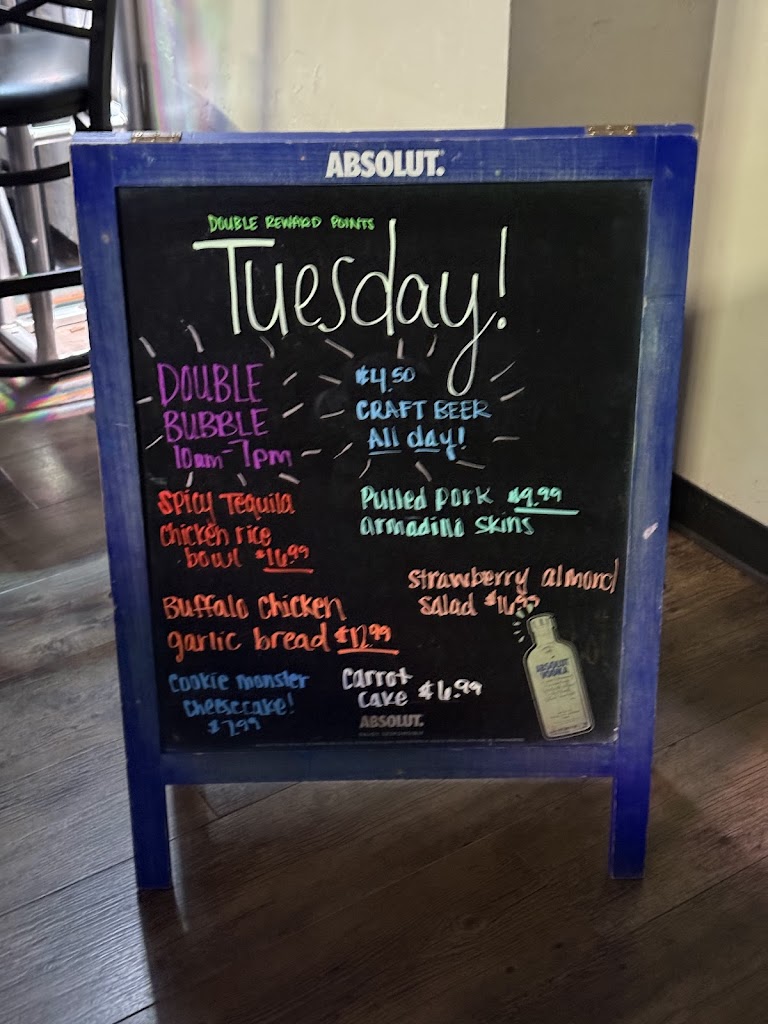 ABSOLUT.
DOUBLE REWARD POINTS
Tuesday!
DOUBLE
BUBBLE
10am-7pm
$4.50
CRAFT BEER
All day!
Spicy Tequila
Chicken rice
bowl $16.99
Pulled Pork $9.99
armadillo skins
Strawberry almond
salad $16.99
Buffalo Chicken
garlic bread $12.99
Cookie monster
Cheesecake!
$7.99
Carrot
Cake $6.99
ABSOLUT
VODKA
ABSOLUT.